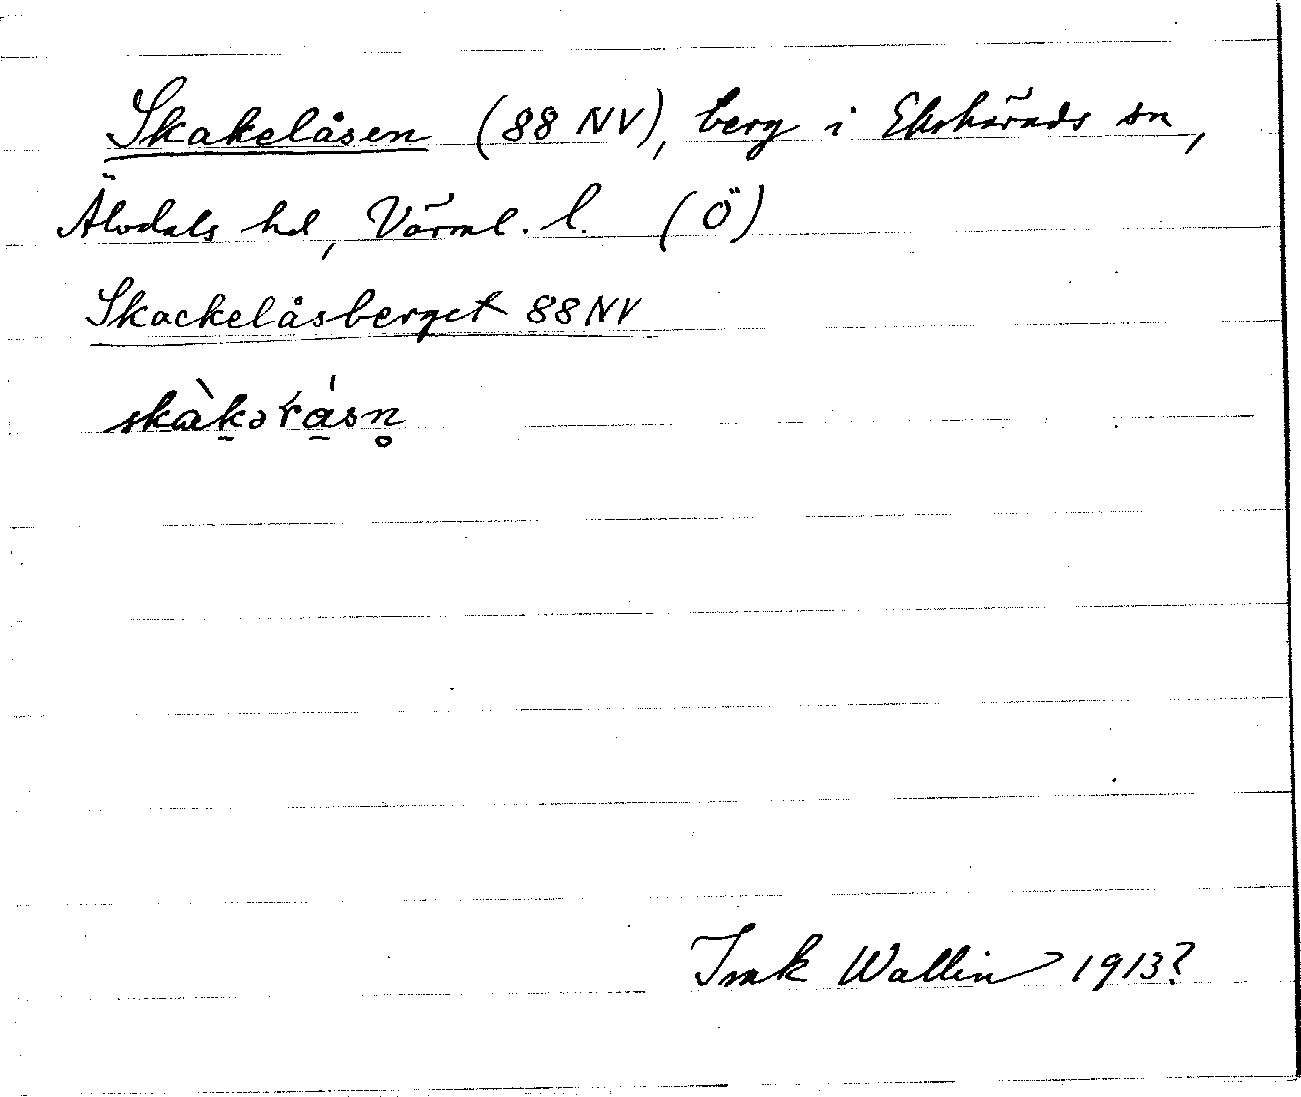 Skakelåsen (88 NV), berg i Ekshärads sn,
Älvdals hd, Värml. l. (Ö)
Skackelåsberget 88 NV
skàkəɽásn̥
Isak Wallin 1913?